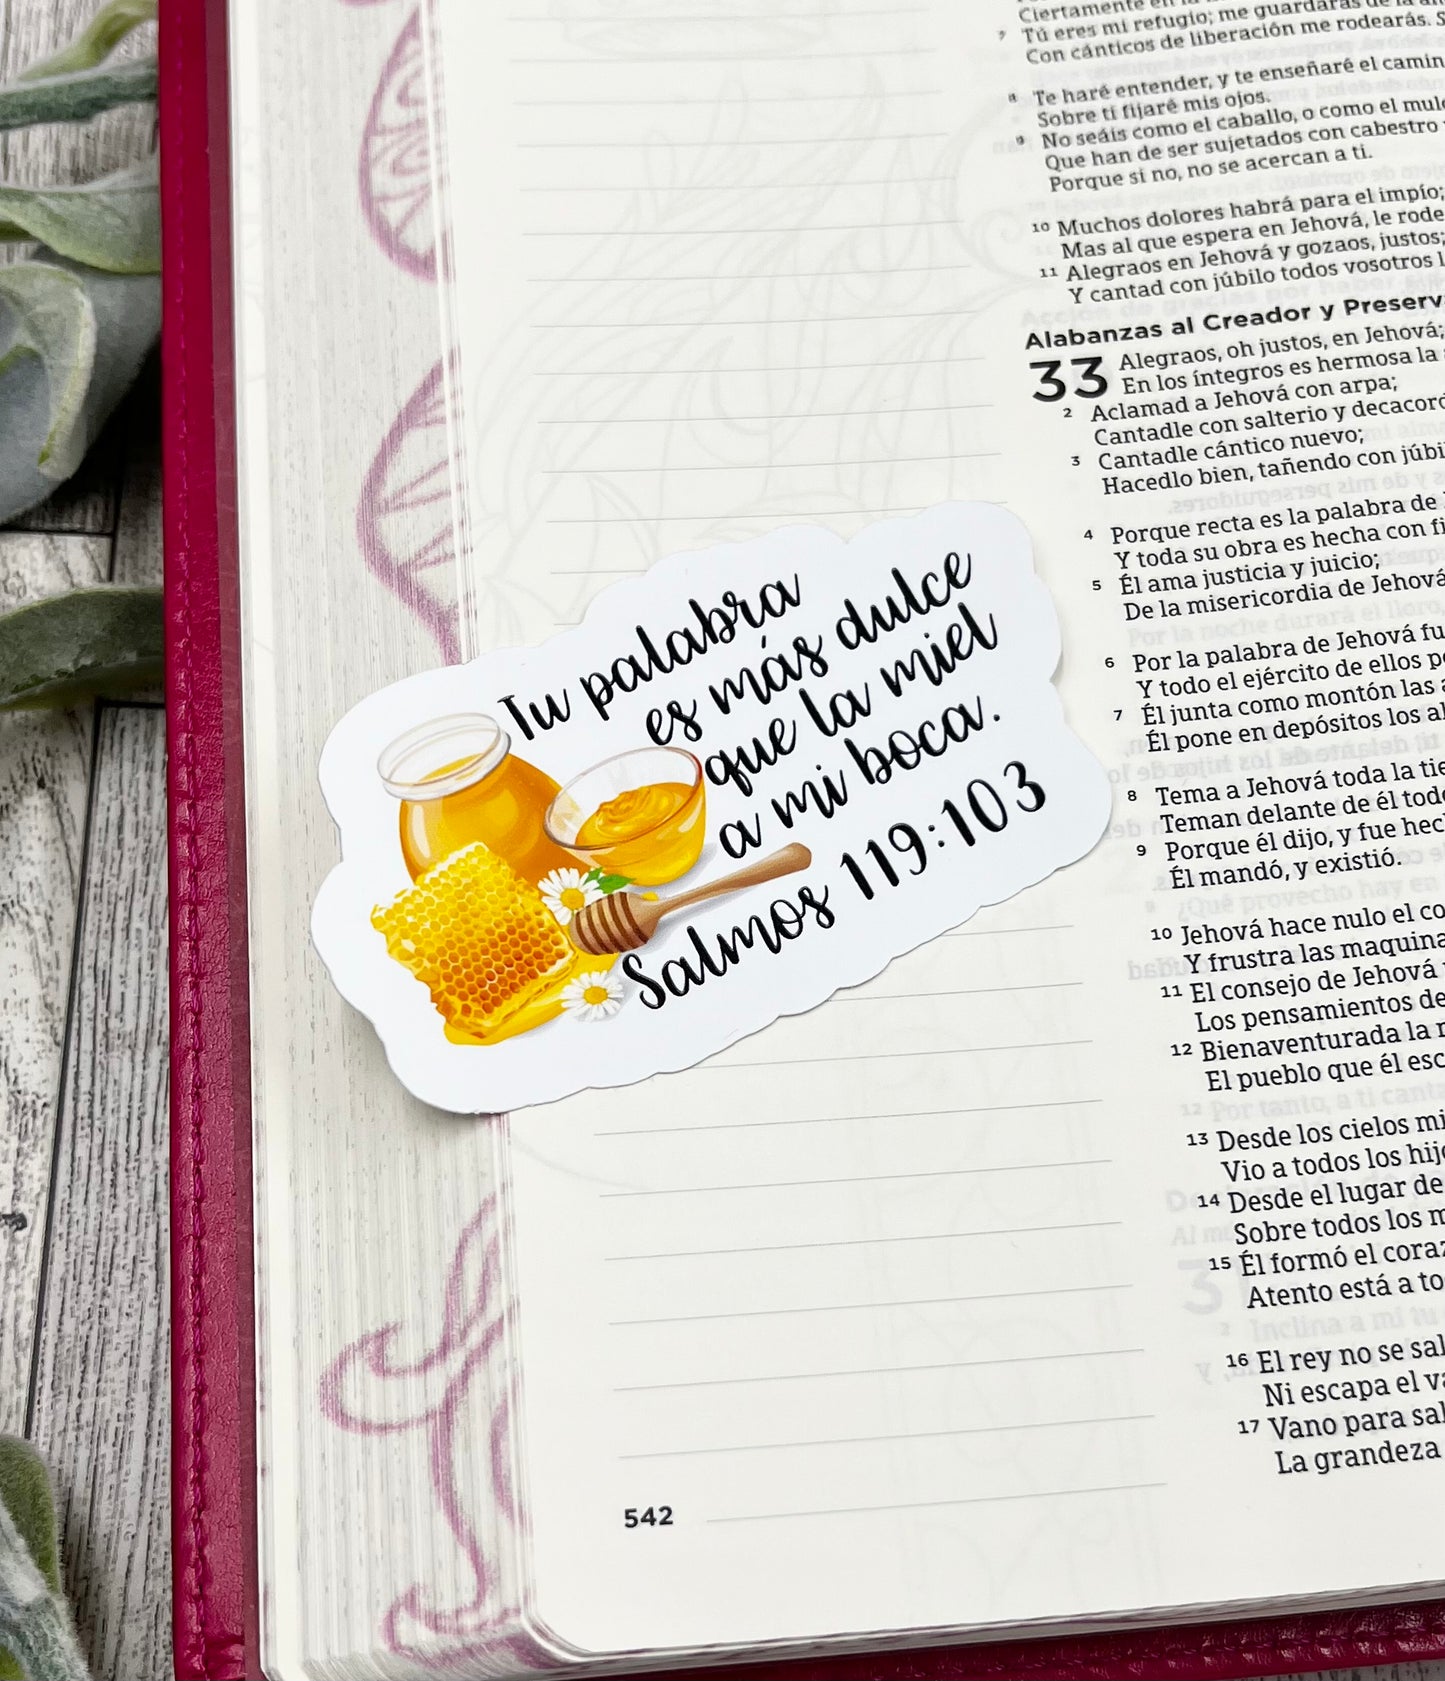 Tu palabra
es más dulce
que la miel
a mi boca.
Salmos 119:103
Ciertamente en la
7 Tú eres mi refugio; me guardarás de la
Con cánticos de liberación me rodearás.
8 Te haré entender, y te enseñaré el
Sobre ti fijaré mis ojos.
9 No seáis como el caballo, o como el
Que han de ser sujetados con cabestro
Porque si no, no se acercan a ti.
10 Muchos dolores habrá para el impío;
Mas al que espera en Jehová, le
11 Alegraos en Jehová y gozaos, justos;
Y cantad con júbilo todos vosotros
Alabanzas al Creador y
33 Alegraos, oh justos, en Jehová;
En los íntegros es hermosa la
2 Aclamad a Jehová con arpa;
Cantadle con salterio y
3 Cantadle cántico nuevo;
Hacedlo bien, tañendo con
4 Porque recta es la palabra de
Y toda su obra es hecha con
5 Él ama justicia y juicio;
De la misericordia de Jehová
6 Por la palabra de Jehová
Y todo el ejército de ellos
7 Él junta como montón las
Él pone en depósitos los
8 Tema a Jehová toda la
Teman delante de él
9 Porque él dijo, y fue
Él mandó, y existió.
10 Jehová hace nulo el
Y frustra las
11 El consejo de Jehová
Los pensamientos de
12 Bienaventurada la
El pueblo que él
13 Desde los cielos
Vio a todos los
14 Desde el lugar de
Sobre todos los
15 Él formó el
Atento está a
16 El rey no se
Ni escapa el
17 Vano para
La grandeza
542